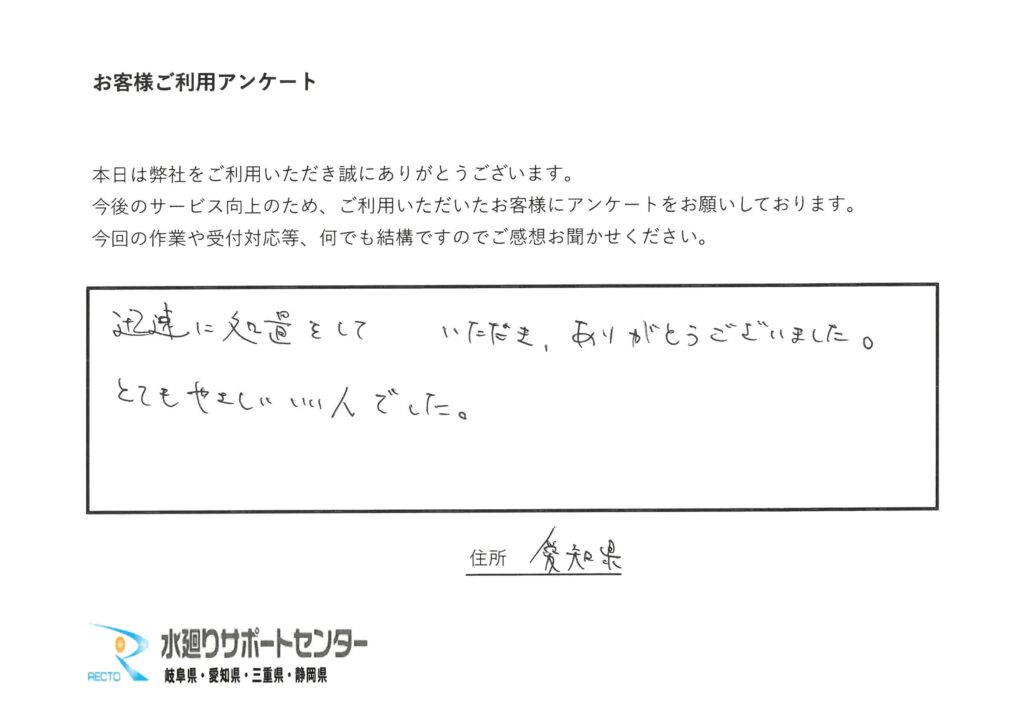 お客様ご利用アンケート
本日は弊社をご利用いただき誠にありがとうございます。
今後のサービス向上のため、ご利用いただいたお客様にアンケートをお願いしております。
今回の作業や受付対応等、何でも結構ですのでご感想お聞かせください。
迅速に処置をして いただき、ありがとうございました。
とてもやさしい いい人でした。
住所 愛知県
水廻りサポートセンター
RECTO 岐阜県・愛知県・三重県・静岡県